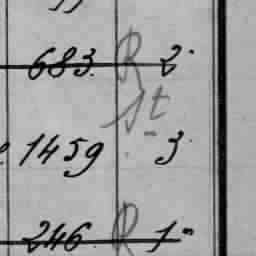 683. R 2.
St
1459 3.
246 R 1"